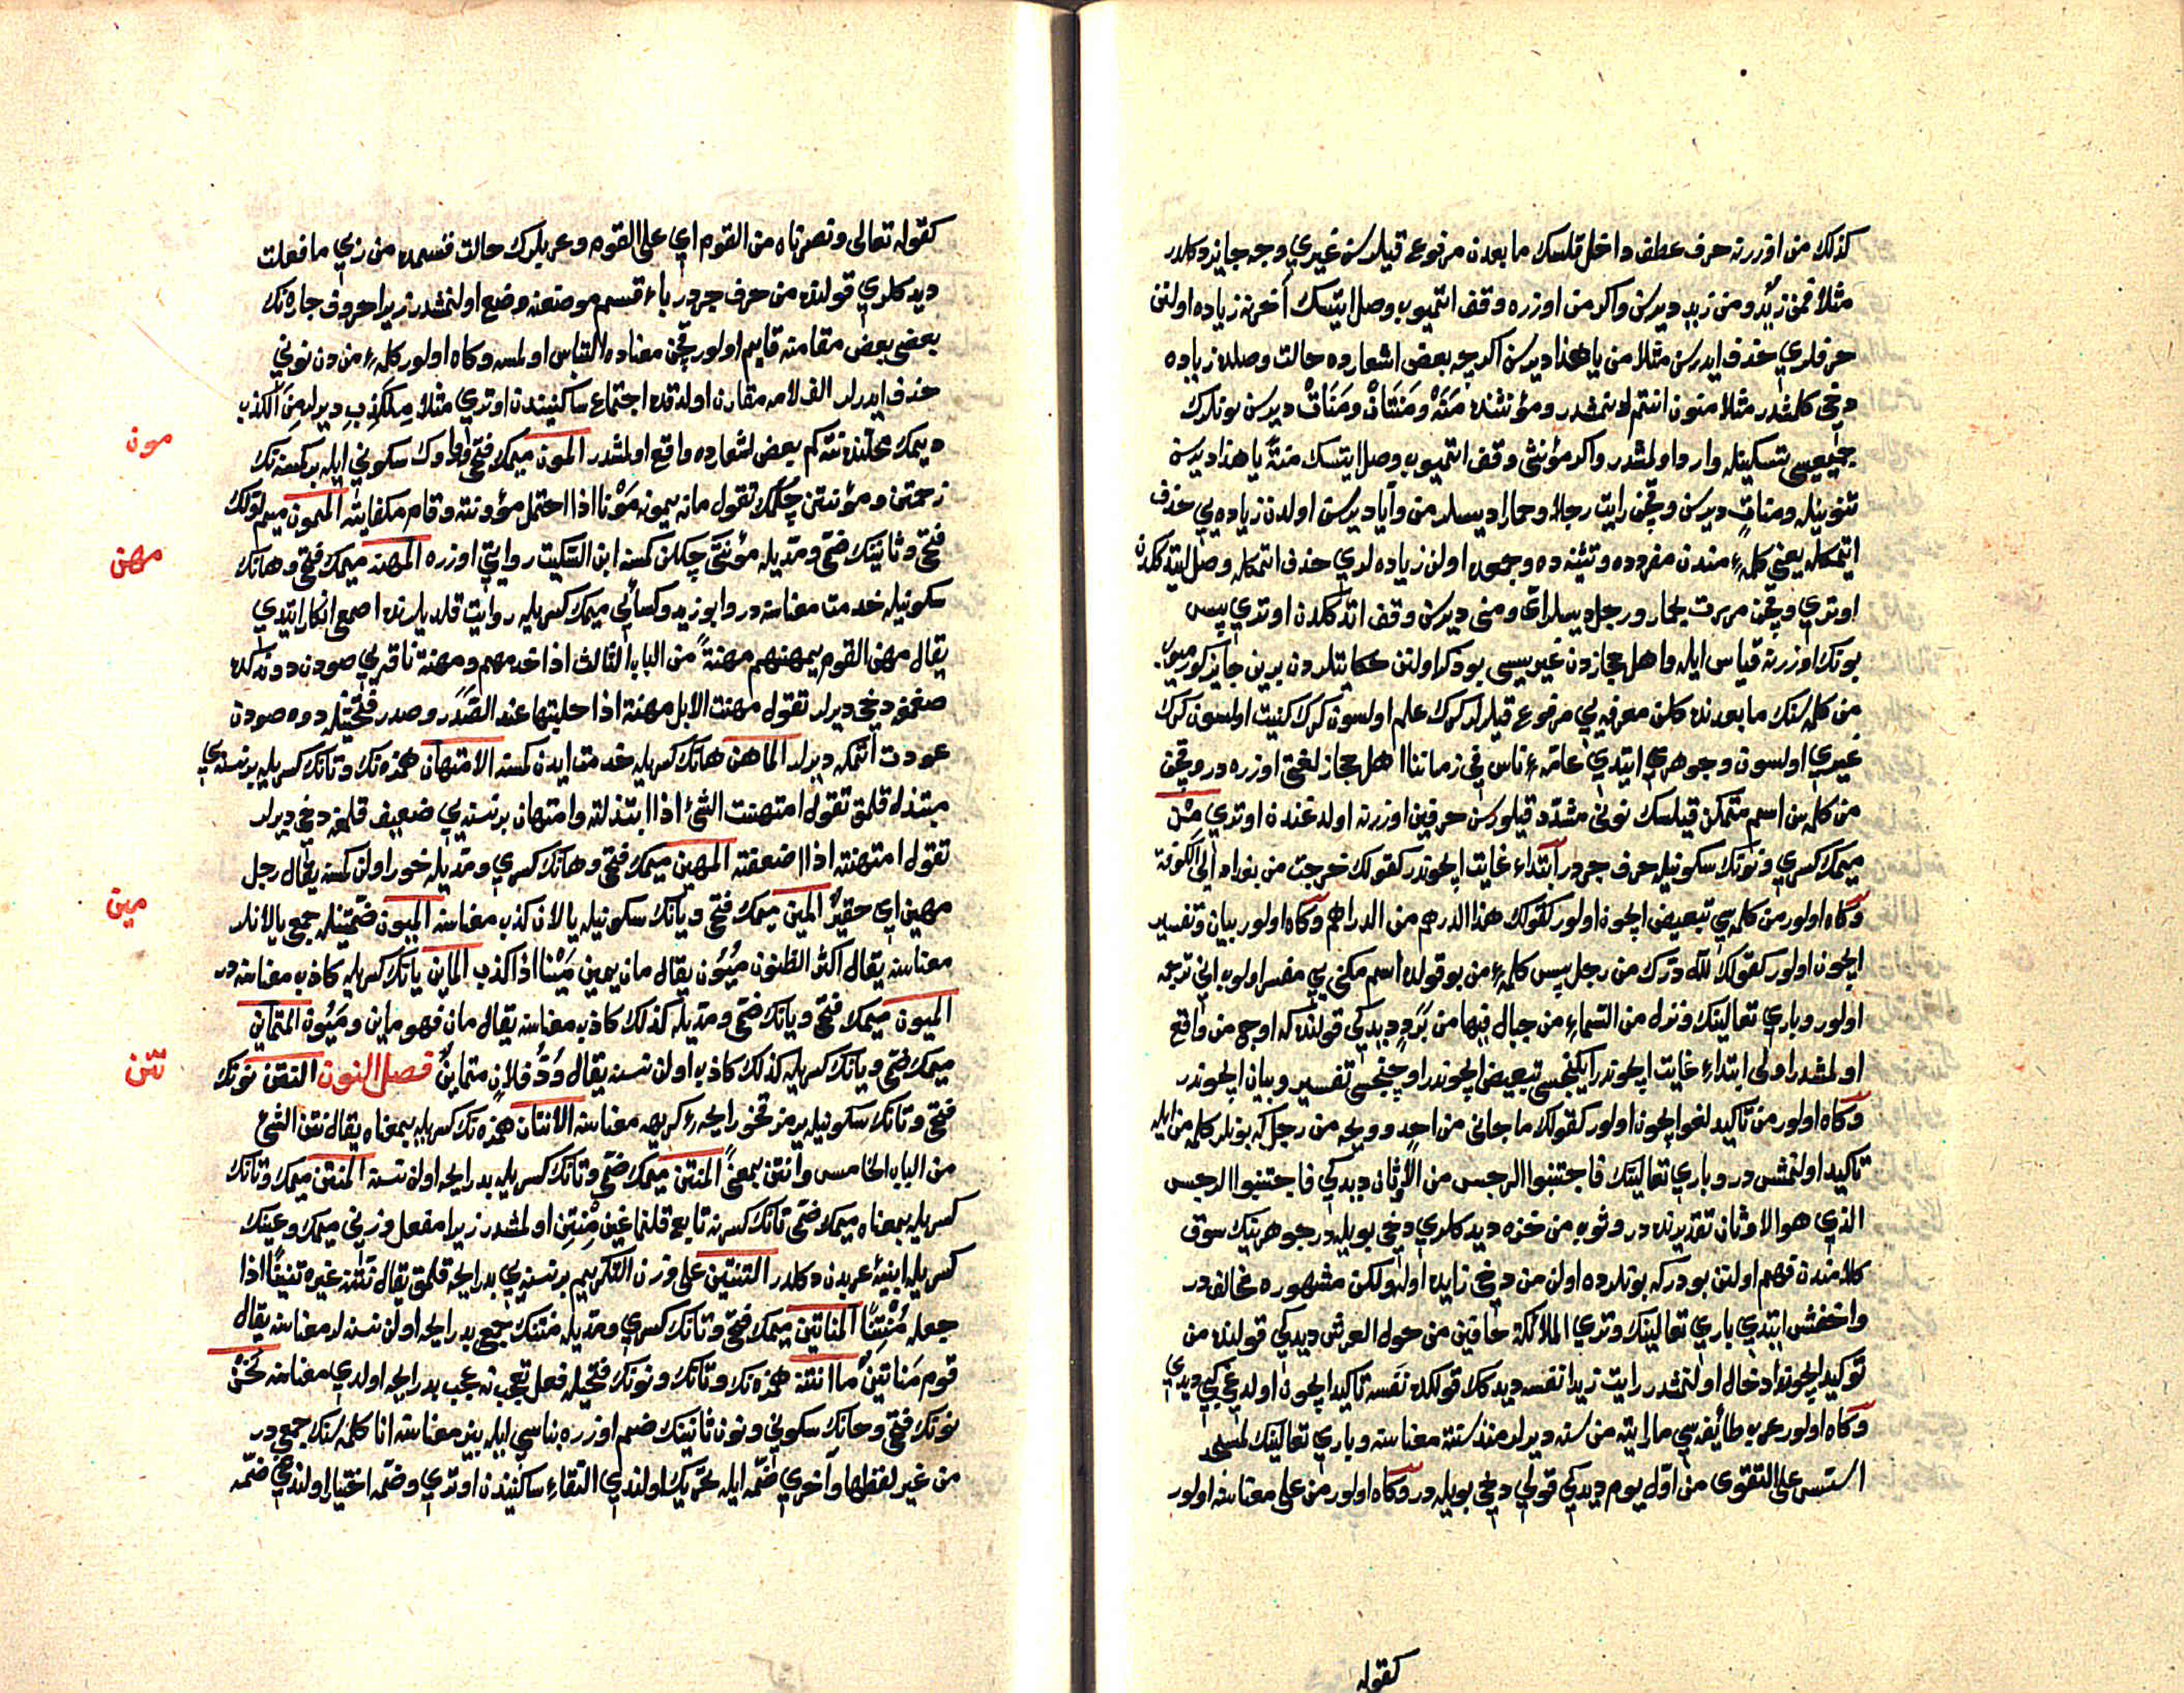 كذلك من اوزرنه حرف عطف داخل قلسك ما بعدن مرفوع قيلرسن غيري وجه جايز دكلدر
مثلا فمن زيد ومن زيد ديرسن واكر من اوزره وقف اتميوب وصل ايتسك آخرنه زياده اولنن
حرفلري حذف ايدرسن مثلا من يا هذا ديرسن اكرچه بعض اشعارده حالت وصلده زياده
دخي كلشدر مثلا منون انتم دنمشدر ومؤنثنده مَنَهْ ومَنَتَانْ ومَنَاتْ ديرسن بونلرك
جميعسي تسكينله وارد اولمشدر واكر مؤنثي وقف اتميوب وصل ايتسك منةً يا هذا ديرسن
تنوينله ومناتٍ ديرسن وقچن رايت رجلا وحمارا ديسلر من وآيا ديرسن اولدن زياده يي حذف
اتمكله يعني كلمهٔ مندن مفردده وتثنيه ده وجمعده اولن زياده لري حذف اتمكله وصل ايتدكلرن
اوتري وقچن مررت بحمار ورجل ديسلر اي ومني ديرسن وقف اتدكلدن اوتري پس
بونك اوزرنه قياس ايله واهل حجازدن غيريسي بو ذكر اولنن حكايتلردن برين جايز كورميوب
من كلمه سنك ما بعدنده كلن معرفه يي مرفوع قيلرلر كرك علم اولسون كرك كنيت اولسون كرك
غيري اولسون وجوهري ايتدي عامّهٔ ناس في زماننا اهل حجاز لغتي اوزره در وقچن
من كلمه سن اسم متمكن قيلسك نونى مشدد قيلورسن حرفين اوزرنه اولدغندن اوتري مِنْ
ميمك كسري ونونك سكونيله حرف جردر ابتداء غايت ايچوندر كقولك خرجت من بغداد الي الكوفة
وكاه اولور من كلمه سي تبعيض ايچون اولور كقولك هذا الدرهم من الدراهم وكاه اولور بيان وتفسير
ايچون اولور كقولك لله درّك من رجل پس كلمهٔ من بو قولده اسم مكني يي مفسر اولوب اني ترجمه
اولور وباري تعالينك ونزل من السماء من جبال فيها من بَرَدٍ ديدكي قولنده كه اوچ من واقع
اولمشدر اولى ابتداء غايت ايچوندر ايكنجسي تبعيض ايچوندر اوچنجسي تفسير وبيان ايچوندر
وكاه اولور من تاكيد لغو ايچون اولور كقولك ما جاني من احدٍ وويحه من رجل كه بونلر كلمهٔ من ايله
تاكيد اولنمشدر وباري تعالينك فاجتنبوا الرجس من الاوثان ديدكي فاجتنبوا الرجس
الذي هو الاوثان تقديرنده در وثوب من خزّه ديدكلري دخي بويله در جوهرينك سوق
كلامندن فهم اولنن بودر كه بونلرده اولن من دخي زايده اوله ولكن مشهوره مخالفدر
واخفش ايتدي باري تعالينك وتري الملائكة حافين من حول العرش ديدكي قولنده من
توكيد ايچون ادخال اولنمشدر رايت زيدا نفسه ديدكك قولكده نفسه تاكيد ايچون اولدغي كبي ديدي
وكاه اولور عرب طائفه سي ما رايته من سنه ديرلر منذ سنة معناسنه وباري تعالينك لمسجد
اسّس على التقوى من اوّل يوم ديدكي قولي دخي بويله در وكاه اولور من على معناسنه اولور
كقوله
كقوله تعالى ونصرناه من القوم اي على القوم وعربلرك حالت قسمده من ربي ما فعلت
ديدكلري قولنده من حرف جردر باء قسم موضعنه وضع اولنمشدر زيرا حروف جاره نك
بعضي بعض مقامنه قايم اولور قچن معناده التباس اولمسه وكاه اولور كلمهٔ من دن نوني
حذف ايدرلر الف لامه مقارن اولدقده اجتماع ساكنيندن اوتري مثلا مِلْكَذِبِ ديرلر مِنَ الكذب
ديمك محلنده نته كم بعض اشعارده واقع اولمشدر المون ميمك فتحي وواوك سكوني ايله بر كسنه نك
زحمتن ومؤنتن چكمك تقول مانه يمونه مَوْنا اذا احتمل مؤونته وقام بكفايته الممون ميم اولك
فتحي وثانينك ضمّي ومدّيله مؤنتي چكلن كمسنه ابن السكيت روايتي اوزره المهنه ميمك فتحي وهانك
سكونيله خدمت معناسنه در وابو زيد وكسائي ميمك كسريله روايت قلديلرنده اصمعي انكار ايتدي
يقال مهن القوم يمهنهم مهنةً من الباب الثالث اذا خدمهم ومهنة ناقه يي صودن دوندكده
صغمغه دخي ديرلر تقول مهنت الابل مهنة اذا حلبتها عند الصَّدَر وصدر فتحتيله دوه صودن
عودت اتمكه ديرلر الماهن هانك كسريله خدمت ايدن كمسنه الامتهان همزه نك وتانك كسريله بر نسنه يي
مبتذل قلمق تقول امتهنت الشئ اذا ابتذلته وامتهان بر نسنه يي ضعيف قلمغه دخي ديرلر
تقول امتهنته اذا اضعفته المهين ميمك فتحي وهانك كسري ومدّيله خور اولن كمسنه يقال رجل
مهين اي حقيرٌ المين ميمك فتحي ويانك سكونيله يالان كذب معناسنه الميون ضمّتينله جمعي يالانلر
معناسنه يقال اكثر الظنون مُيُونٌ يقال مان يمين مَيْنا اذا كذب الماين يانك كسريله كاذب معناسنه در
الميون ميمك فتحي ويانك ضمّي ومدّيله كذلك كاذب معناسنه يقال مان فهو ماين ومَيُون المتماين
ميمك ضمّي ويانك كسريله كذلك كاذب اولن نسنه يقال وُدُّ فلانٍ متماينٌ فصل النون النتن نونك
فتحي وتانك سكونيله يرمز قخو رايحهٔ كريهه معناسنه الانتان همزه نك كسريله بمعناه يقال نتن الشئ
من الباب الخامس وانتن بمعنىً المنتن ميمك ضمّي وتانك كسريله بد رايحه اولن نسنه المنتن ميمك وتانك
كسريله بمعناه ميمك ضمّي تانك كسرنه تابع قلنماغين مِنْتِن اولمشدر زيرا مفعل وزني ميمك وعينك
كسريله ابنيهٔ عربدن دكلدر التنتين على وزن التكريم بر نسنه يي بد رايحه قلمق يقال نتّن غيره تنتينًا اذا
جعله مُنْتِنًا المناتين ميمك فتحي وتانك كسري ومدّيله منتنك جمعي بد رايحه اولن نسنه لر معناسنه يقال
قوم مَناتين ما انتنه همزه نك وتانك ونونك فتحيله فعل تعجبدر نه عجب بد رايحه اولدي معناسنه نَحْنُ
نونك فتحي وحانك سكوني ونون ثانينك ضمي اوزره بناسي ايله بيز معناسنه انا كلمه سنك جمعيدر
من غير لفظها وآخري ضمّه ايله تحريك اولندي التقاء ساكنيندن اوتري وضمّه اختيار اولندي ضمّه
مون
مهن
مين
نتن